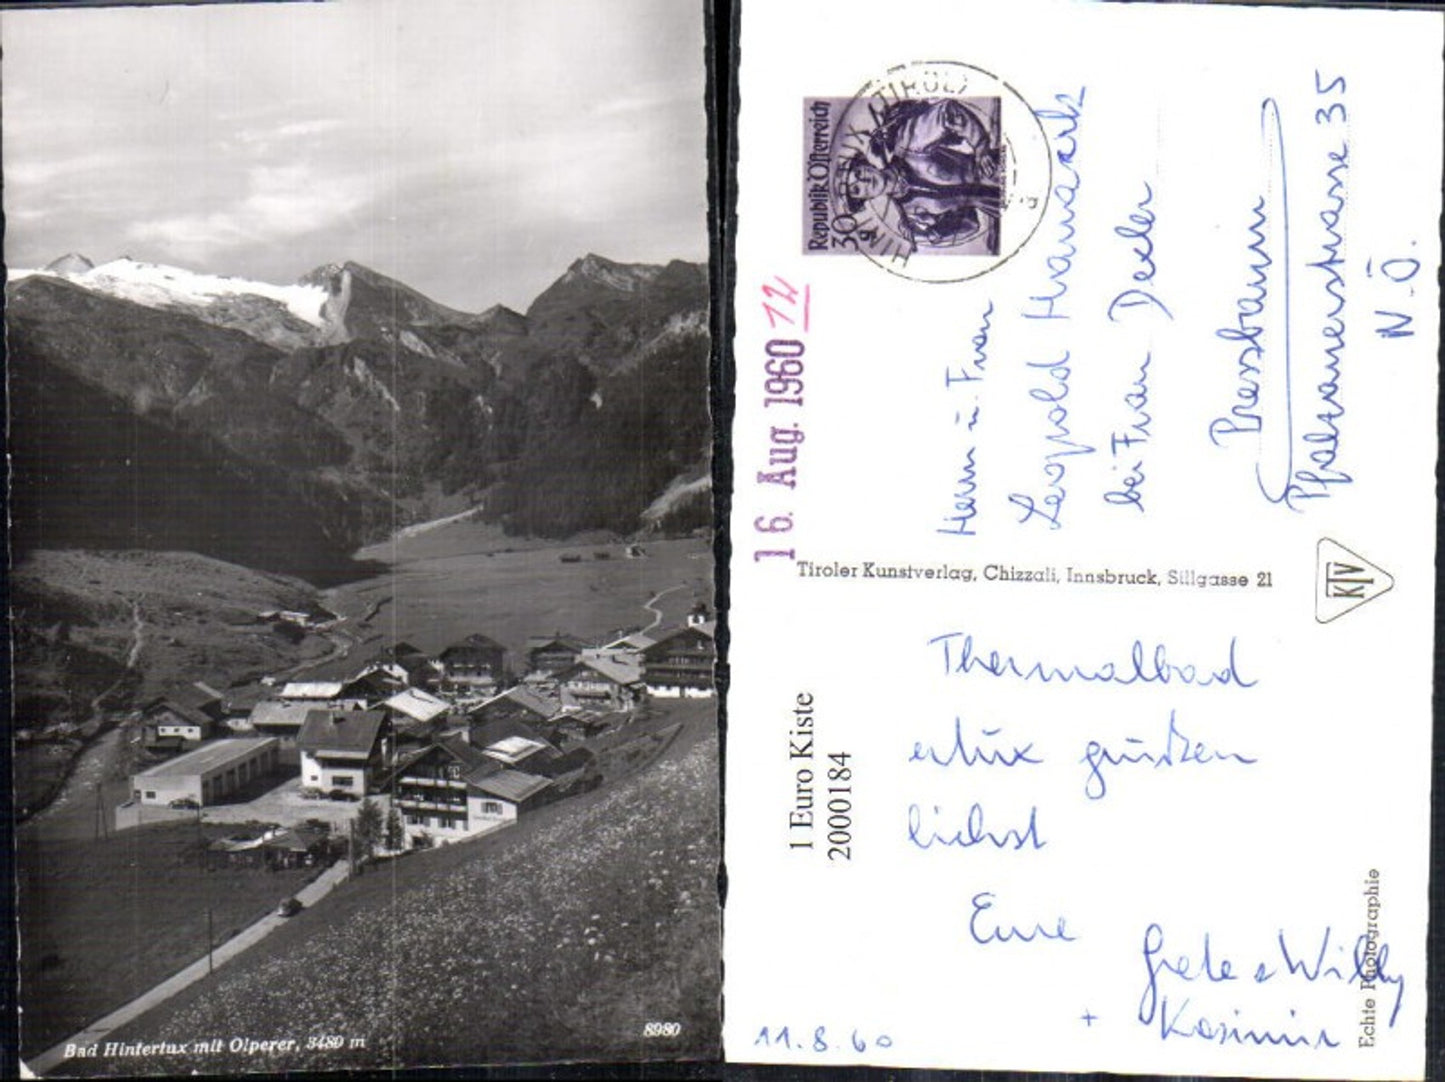 Bad Hintertux mit Olperer, 3480 m
8980
Republik Österreich
30 g
HINTERTUX (TIROL)
a
16. Aug. 1960
12
Herrn u. Frau
Leopold
bei Frau
Pressbaum
Pfalzauerstrasse 35
N.Ö.
Tiroler Kunstverlag, Chizzali, Innsbruck, Sillgasse 21
KTV
1 Euro Kiste
2000184
Thermalbad
grüßen
Eure
Grete & Willy
+ Kasimir
11.8.60
Echte Photographie